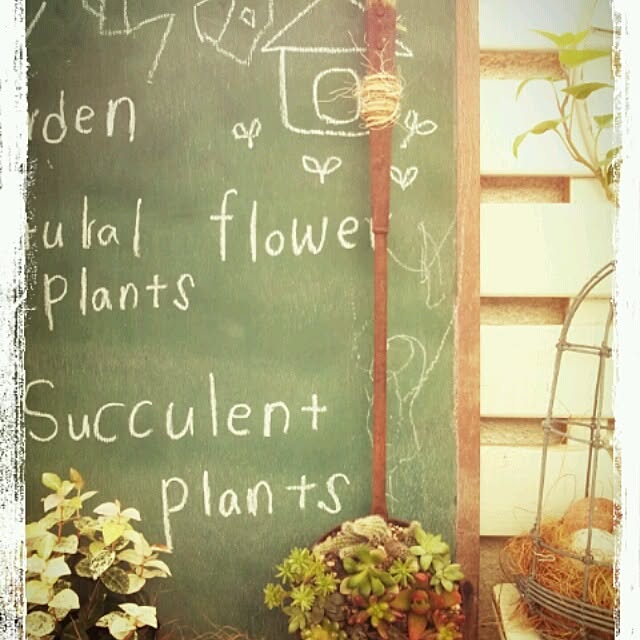 rden
tural flower
plants
Succulent
plants